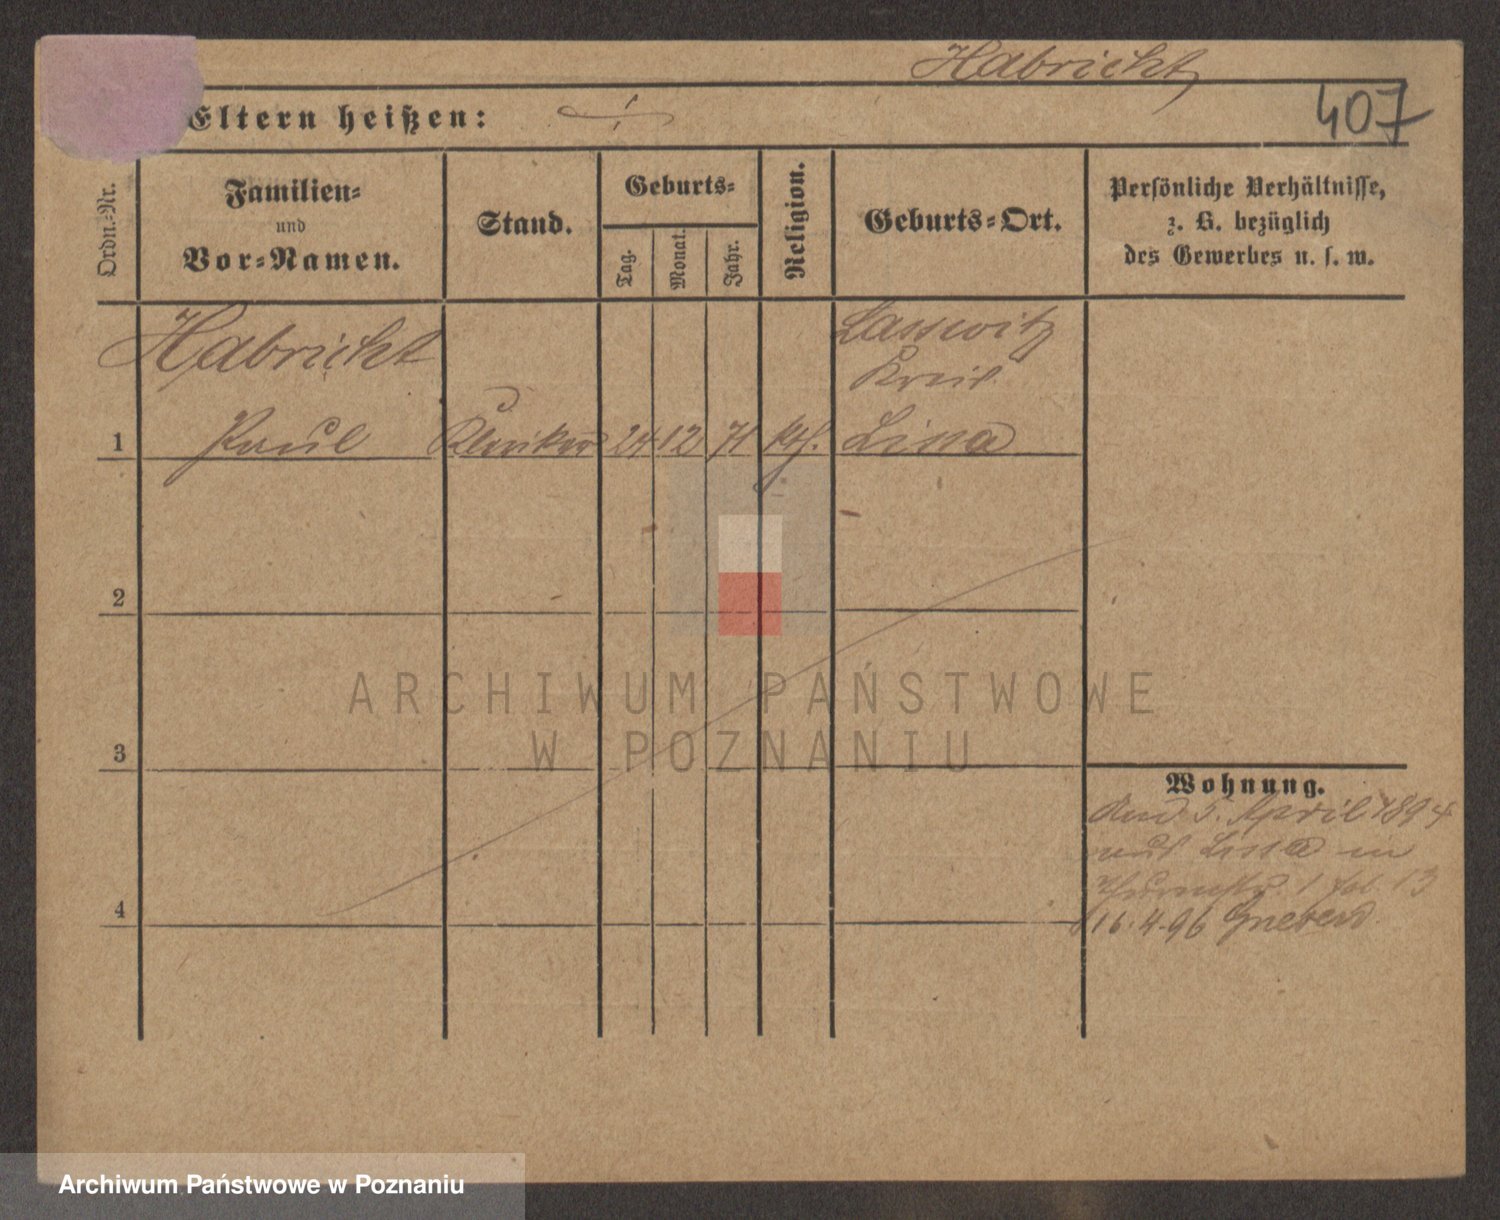 Habricht
407
Eltern heißen:
Ordn.-Nr.
Familien-
und
Vor-Namen.
Stand.
Geburts-
Tag.
Monat.
Jahr.
Religion.
Geburts-Ort.
Persönliche Verhältnisse,
z. B. bezüglich
des Gewerbes u. s. w.
Habricht
Lasswitz
Kreis
1 Paul Kleriker 24 12 71 kth. Lissa
2
3
4
Wohnung.
5. April 1894
aus Lissa in
1 13
16.4.96 Gnesen
ARCHIWUM PAŃSTWOWE
W POZNANIU
Archiwum Państwowe w Poznaniu